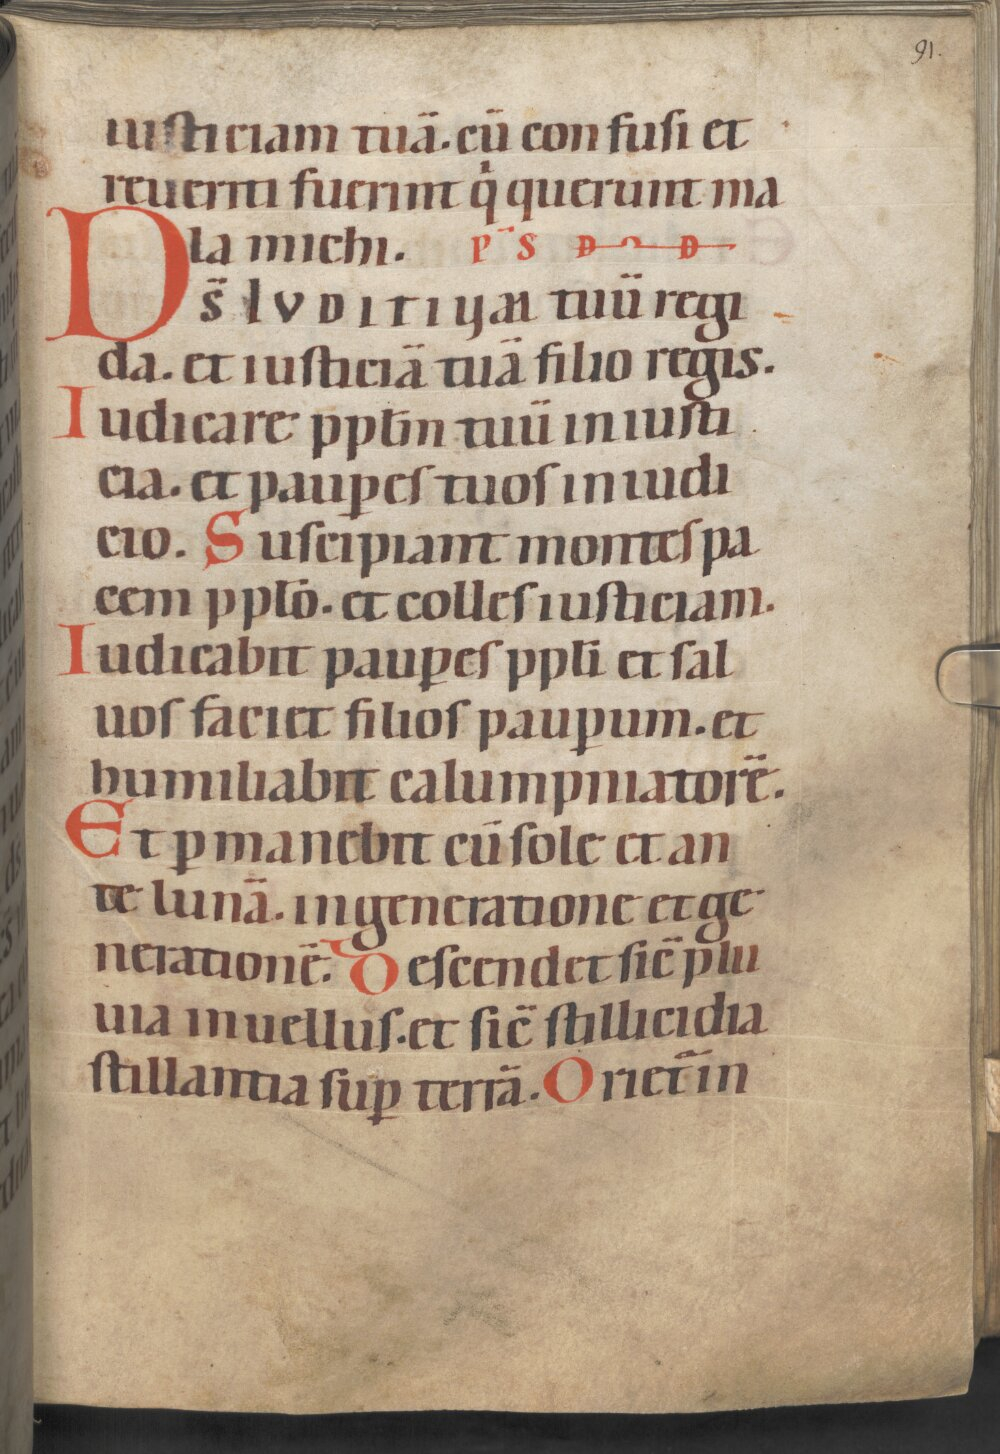 91.
iusticiam tuā. cū confusi et
reueriti fuerint q̇ querunt ma
la michi. P̄S D D
Ds̄ IVDITIVM tuū regi
da. et iusticiā tuā filio regis.
Iudicare pplm̄ tuū in iusti
cia. et paup̱es tuos in iudi
cio. Suscipiant montes pa
cem pplō. et colles iusticiam.
Iudicabit paup̱es ppli̅ et sal
uos faciet filios paup̱um. et
humiliabit calumpniatorē.
Et p̱manebit cū sole et an
te lunā. in generatione et ge
nerationē. Descendet sic̄ plu
uia in uellus. et sic̄ stillicidia
stillantia sup̱ terrā. Oriet̄ in